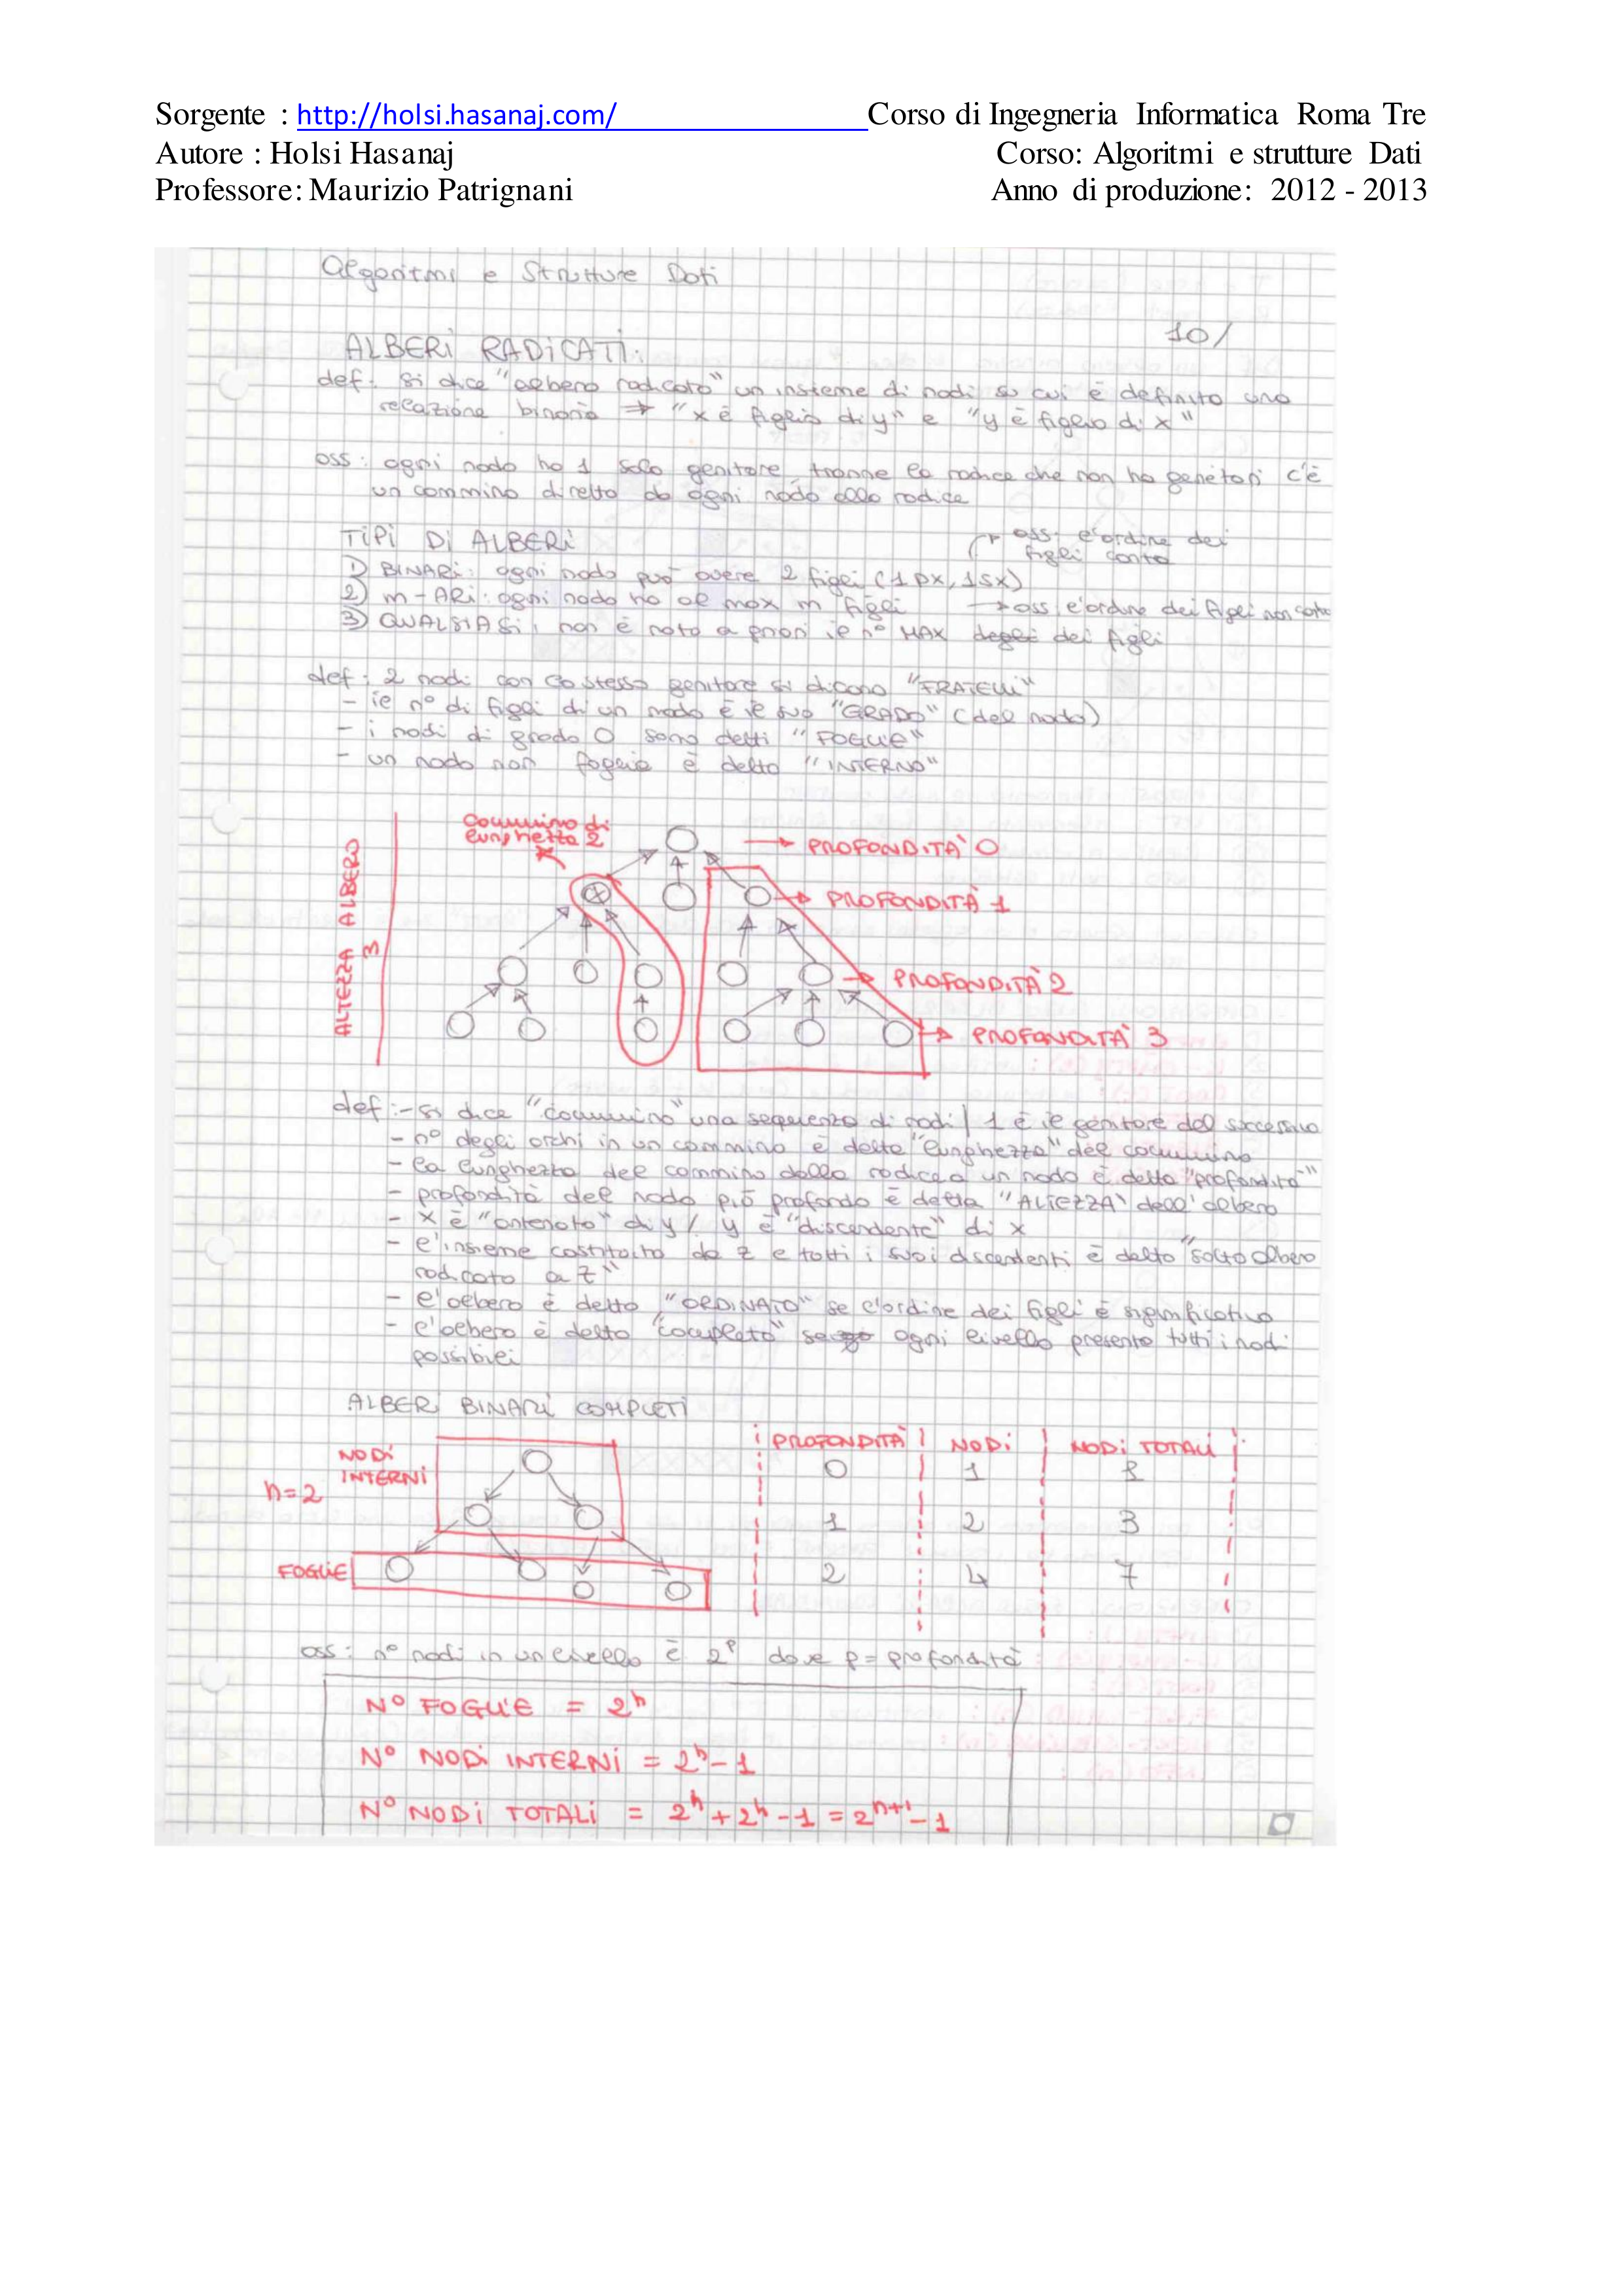 Sorgente : http://holsi.hasanaj.com/ Corso di Ingegneria Informatica Roma Tre
Autore : Holsi Hasanaj Corso: Algoritmi e strutture Dati
Professore: Maurizio Patrignani Anno di produzione: 2012 - 2013
Algoritmi e Strutture Dati
10/
ALBERI RADICATI:
def: si dice "albero radicato" un insieme di nodi su cui è definito una
relazione binaria → "x è figlio di y" e "y è figlio di x"
oss: ogni nodo ha 1 solo genitore, tranne la radice che non ha genitori c'è
un cammino diretto da ogni nodo alla radice
TIPI DI ALBERI
oss: l'ordine dei
figli conta
1) BINARI: ogni nodo può avere 2 figli (1 DX, 1 SX)
2) m-ARI: ogni nodo ha al max m figli → oss l'ordine dei figli non conta
3) QUALSIASI, non è nota a priori il n° MAX degli dei figli
def: 2 nodi con lo stesso genitore si dicono "FRATELLI"
- il n° di figli di un nodo è il suo "GRADO" (del nodo)
- i nodi di grado 0 sono detti "FOGLIE"
- un nodo non foglia è detto "INTERNO"
Cammino di
lunghezza 2
→ PROFONDITÀ 0
PROFONDITÀ 1
PROFONDITÀ 2
PROFONDITÀ 3
ALTEZZA ALBERO
3
def: - si dice "cammino" una sequenza di nodi / 1 è il genitore del successivo
- n° degli archi in un cammino è detto "lunghezza" del cammino
- la lunghezza del cammino dalla radice a un nodo è detta "profondità"
- profondità del nodo più profondo è detta "ALTEZZA" dell'albero
- x è "antenato" di y / y è "discendente" di x
- l'insieme costituito da z e tutti i suoi discendenti è detto "sotto albero
radicato a z"
- l'albero è detto "ORDINATO" se l'ordine dei figli è significativo
- l'albero è detto "completo" se ogni livello presenta tutti i nodi
possibili
ALBERI BINARI COMPLETI
PROFONDITÀ NODI NODI TOTALI
0 1 1
1 2 3
2 4 7
NODI
INTERNI
h=2
FOGLIE
oss: n° nodi in un livello è 2^p dove p = profondità
N° FOGLIE = 2^h
N° NODI INTERNI = 2^h - 1
N° NODI TOTALI = 2^h + 2^h - 1 = 2^h+1 - 1